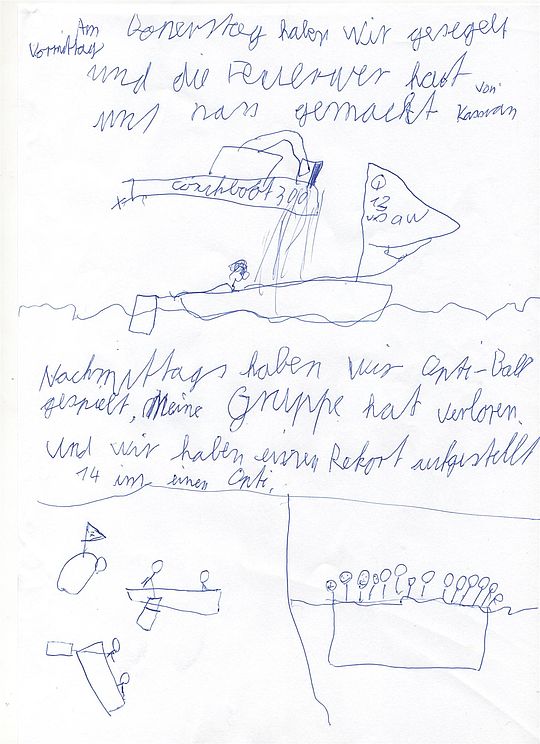 Am Donerstag haben wir gesegelt
Vormittag
und die Feuerwer hat von
uns nass gemacht Kassian
coachboot 300
12
Nachmittags haben wir Opti-Ball
gespielt, Meine Gruppe hat verloren.
und wir haben einen Rekort aufgestellt
14 in einen Opti.